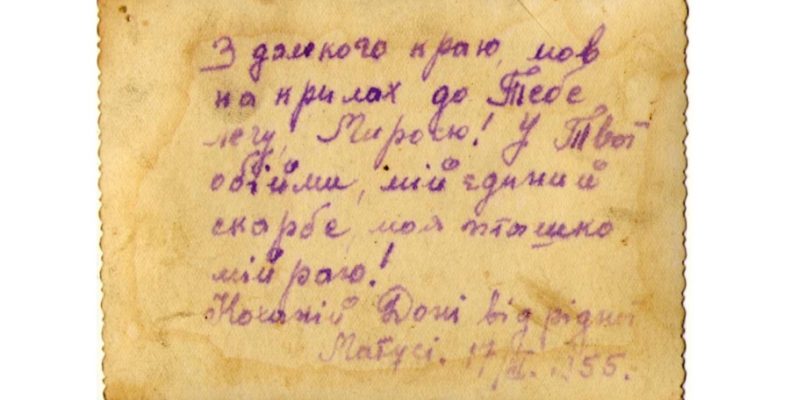 З далекого краю, мов
на крилах до Тебе
лечу, Миросю! У Твої
обійми, мій єдиний
скарбе, моя пташко
мій раю!
Коханій Доні від рідної
Матусі. 17/ІІ. 1955.